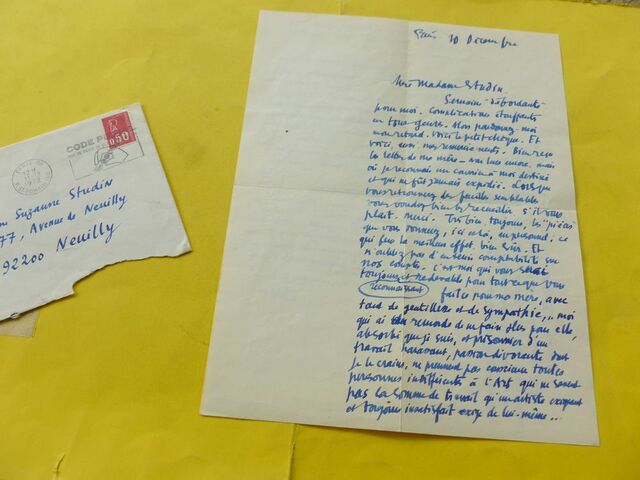 0.50
CODE PO
Suzanne Studin
77, Avenue de Neuilly
92200 Neuilly
Paris 10 Décembre
Madame Studin.
Semaine débordante
pour moi. Complications étouffantes
en tous genres. Alors pardonnez-moi
mon retard. Voici le petit chèque. Et
voici, aussi nos remerciements. Bien reçu
les lettres de ma mère - encore, mais
où je reconnais un courrier à moi destiné
et qui ne fût jamais expédié. Lorsque
vous retrouvez des feuilles semblables
vous voudrez bien les recueillir s'il vous
plaît. Merci. Très bien toujours, les "pièces"
que vous donnez, ici et là, au personnel; ce
qui fera le meilleur effet bien sûr. Et
n'oubliez pas d'en tenir comptabilité sur
nos comptes. C'est moi qui vous serai
toujours et redevable pour tout ce que vous
reconnaissant faites pour ma mère, avec
tant de gentillesse et de sympathie,.. moi
qui ai de remords de ne faire plus pour elle,
absorbé que je suis, et prisonnier d'un
travail harassant, passion dévorante dont
je le crains, ne prennent pas conscience toutes
personnes indifférentes à l'Art qui ne savent
pas la somme de travail qu'un artiste exigeant
et toujours insatisfait exige de lui-même...